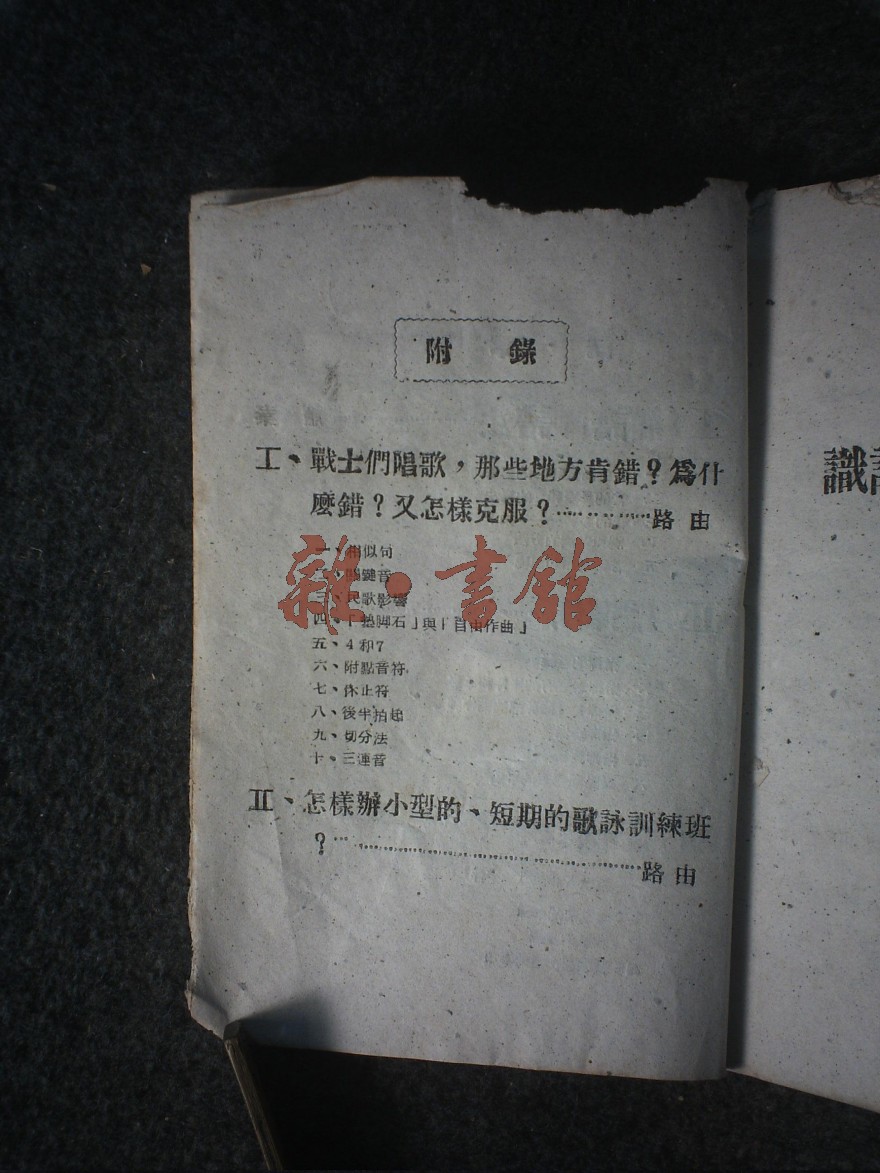 附錄
I、戰士們唱歌，那些地方肯錯？爲什
麼錯？又怎樣克服？……………路由
一、相似句
三、民歌影響
四、「墊脚石」與「自由作曲」
五、4和7
六、附點音符
七、休止符
八、後半拍起
九、切分法
十、三連音
II、怎樣辦小型的、短期的歌詠訓練班
？……………………………………路由
雜·書館
識